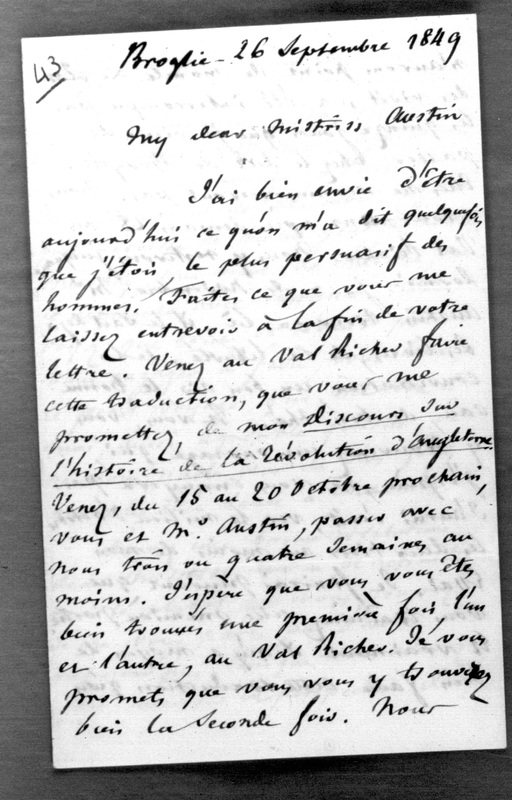 43
Broglie - 26 Septembre 1849
My dear Mistriss Austin
J'ai bien envie d'être
aujourd'hui ce qu'on m'a dit quelquefois
que j'étois le plus persuasif des
hommes. Faites ce que vous me
laissez entrevoir à la fin de votre
lettre. Venez au Val Richer faire
cette traduction, que vous me
promettez, de mon Discours sur
l'histoire de la Révolution d'Angleterre.
Venez, du 15 au 20 Octobre prochain,
vous et Mr. Austin, passer avec
nous trois ou quatre semaines au
moins. J'espère que vous vous êtes
bien trouvés une première fois l'un
et l'autre, au Val Richer. Je vous
promets que vous vous y trouverez
bien la seconde fois. Nous